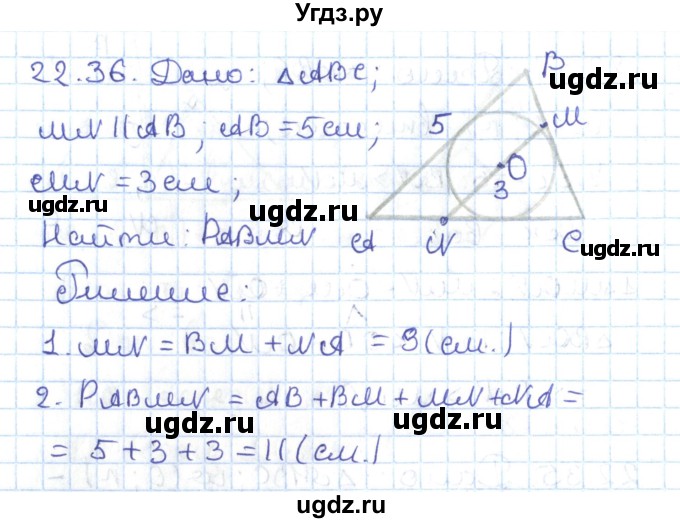 Угдз.ру
22.36. Дано: △ABC;
MN || AB; AB = 5 см;
MN = 3 см;
Найти: PABMN
Решение:
1. MN = BM + NA = 3 (см.)
2. PABMN = AB + BM + MN + NA =
= 5 + 3 + 3 = 11 (см.)
B
M
5
O
3
A
N
C
ugdz.ru
ugdz.ru
ugdz.ru
ugdz.ru
ugdz.ru
ugdz.ru
ugdz.ru
ugdz.ru
ugdz.ru
ugdz.ru